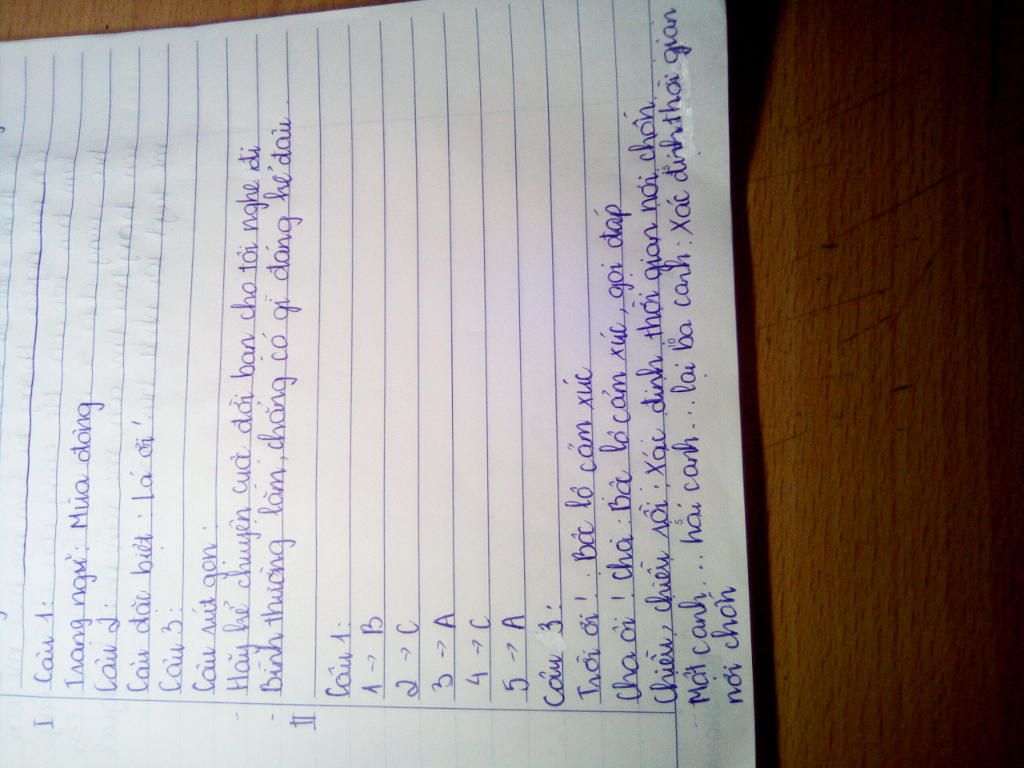 I Câu 1:
Trạng ngữ: Mùa đông
Câu 2:
Câu đặc biệt: Lá ơi!
Câu 3:
Câu rút gọn:
- Hãy kể chuyện cuộc đời bạn cho tôi nghe đi
- Bình thường lắm, chẳng có gì đáng kể đâu.
II
Câu 1:
1 → B
2 → C
3 → A
4 → C
5 → A
Câu 3:
Trời ơi!: Bộc lộ cảm xúc
Cha ơi! Cha: Bộc lộ cảm xúc, gọi đáp
Chiều, chiều rồi: Xác định thời gian nơi chốn
Một canh.... hai canh... lại ba canh: Xác định thời gian
nơi chốn